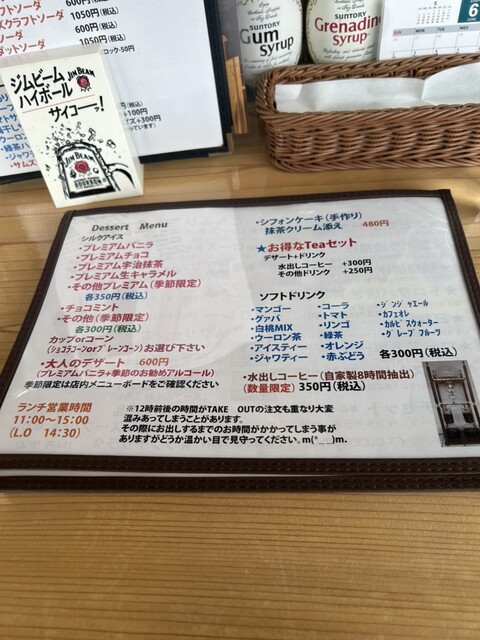 フトソーダ 600円(税込)
1050円(税込)
Xクラフトソーダ 600円(税込)
ーダ
ダットソーダ 1050円(税込)
コック-50円
SUNTORY
Gum
Syrup
SUNTORY
Grenadine
Syrup
CALENDAR
6
JUNE
ジムビーム
ハイボール
サイコーッ!
JIM BEAM
JIM BEAM
BOURBON
+100円
+300円
Dessert Menu
シルクアイス
・プレミアムバニラ
・プレミアムチョコ
・プレミアム宇治抹茶
・プレミアム生キャラメル
・その他プレミアム(季節限定)
各350円(税込)
・チョコミント
・その他(季節限定)
各300円(税込)
カップorコーン
(ショコラコーンorプレーンコーン)お選び下さい
・大人のデザート 600円
(プレミアムバニラ+季節のお勧めアルコール)
季節限定は店内メニューボードをご確認ください
・シフォンケーキ(手作り)
抹茶クリーム添え 480円
★お得なTeaセット
デザート+ドリンク
水出しコーヒー +300円
その他ドリンク +250円
ソフトドリンク
・マンゴー ・コーラ ・ジンジャエール
・グァバ ・トマト ・カフェオレ
・白桃MIX ・リンゴ ・カルピスウォーター
・ウーロン茶 ・緑茶 ・グレープフルーツ
・アイスティー ・オレンジ
・ジャワティー ・赤ぶどう 各300円(税込)
・水出しコーヒー(自家製8時間抽出)
(数量限定) 350円(税込)
ランチ営業時間
11:00~15:00
(L.O 14:30)
※12時前後の時間がTAKE OUTの注文も重なり大変
混みあってしまうことがあります。
その際にお出しするまでのお時間がかかってしまう事が
ありますがどうか温かい目で見守ってください。m(*_ _)m.